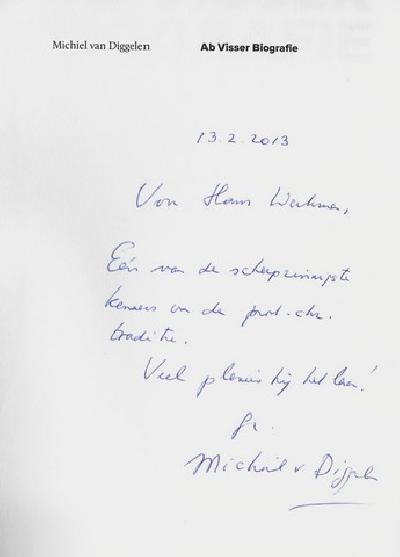 Michiel van Diggelen Ab Visser Biografie
13.2.2013
Voor Hans Werkman,
Eén van de scherpzinnigste
kenners van de prot.-chr.
traditie.
Veel plezier bij het lezen!
gr.
Michiel v Diggelen